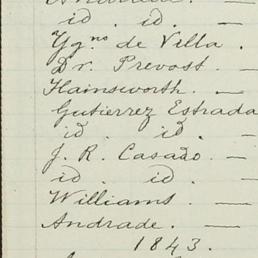 Andrade. —
id . id. —
Ygno de Villa .
Dr. Prevost. —
Hainsworth. —
Gutierrez Estrada
id . id . —
J. R. Casado. —
id . id. —
Williams —
Andrade. —
1843.